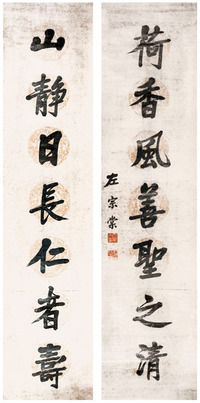 荷香風善聖之清
山靜日長仁者壽
左宗棠